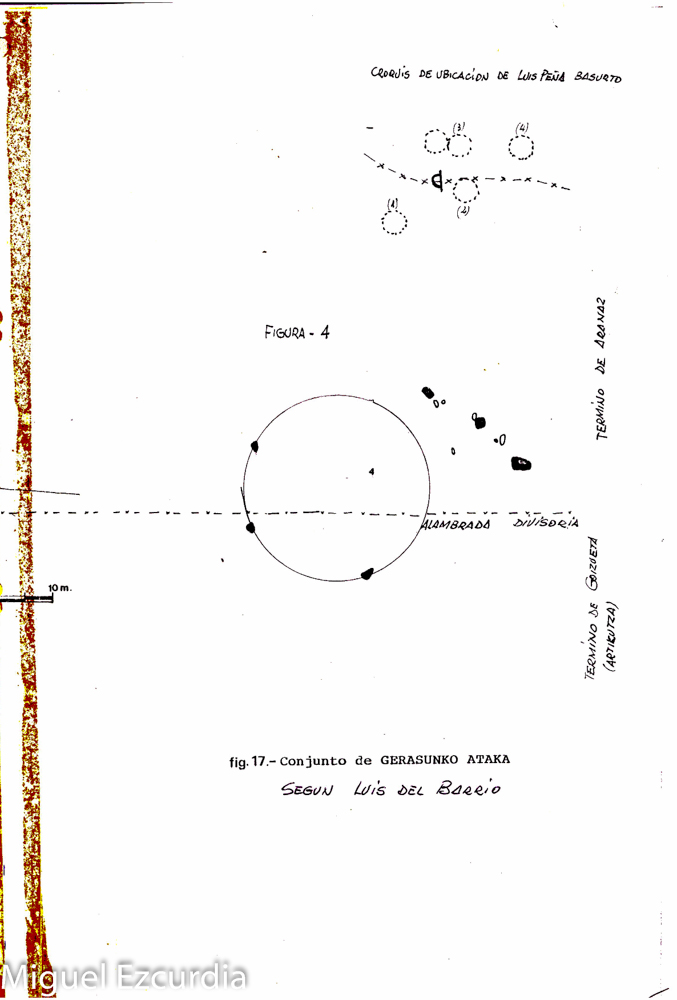 CROQUIS DE UBICACIÓN DE LUIS PEÑA BASURTO
(3)
(4)
(1)
(2)
FIGURA - 4
TERMINO DE ARANAZ
4
ALAMBRADA DIVISORIA
10 m.
TERMINO DE GOIZUETA
(ARTIKUTZA)
fig. 17.- Conjunto de GERASUNKO ATAKA
SEGUN LUIS DEL BARRIO
Miguel Ezcurdia